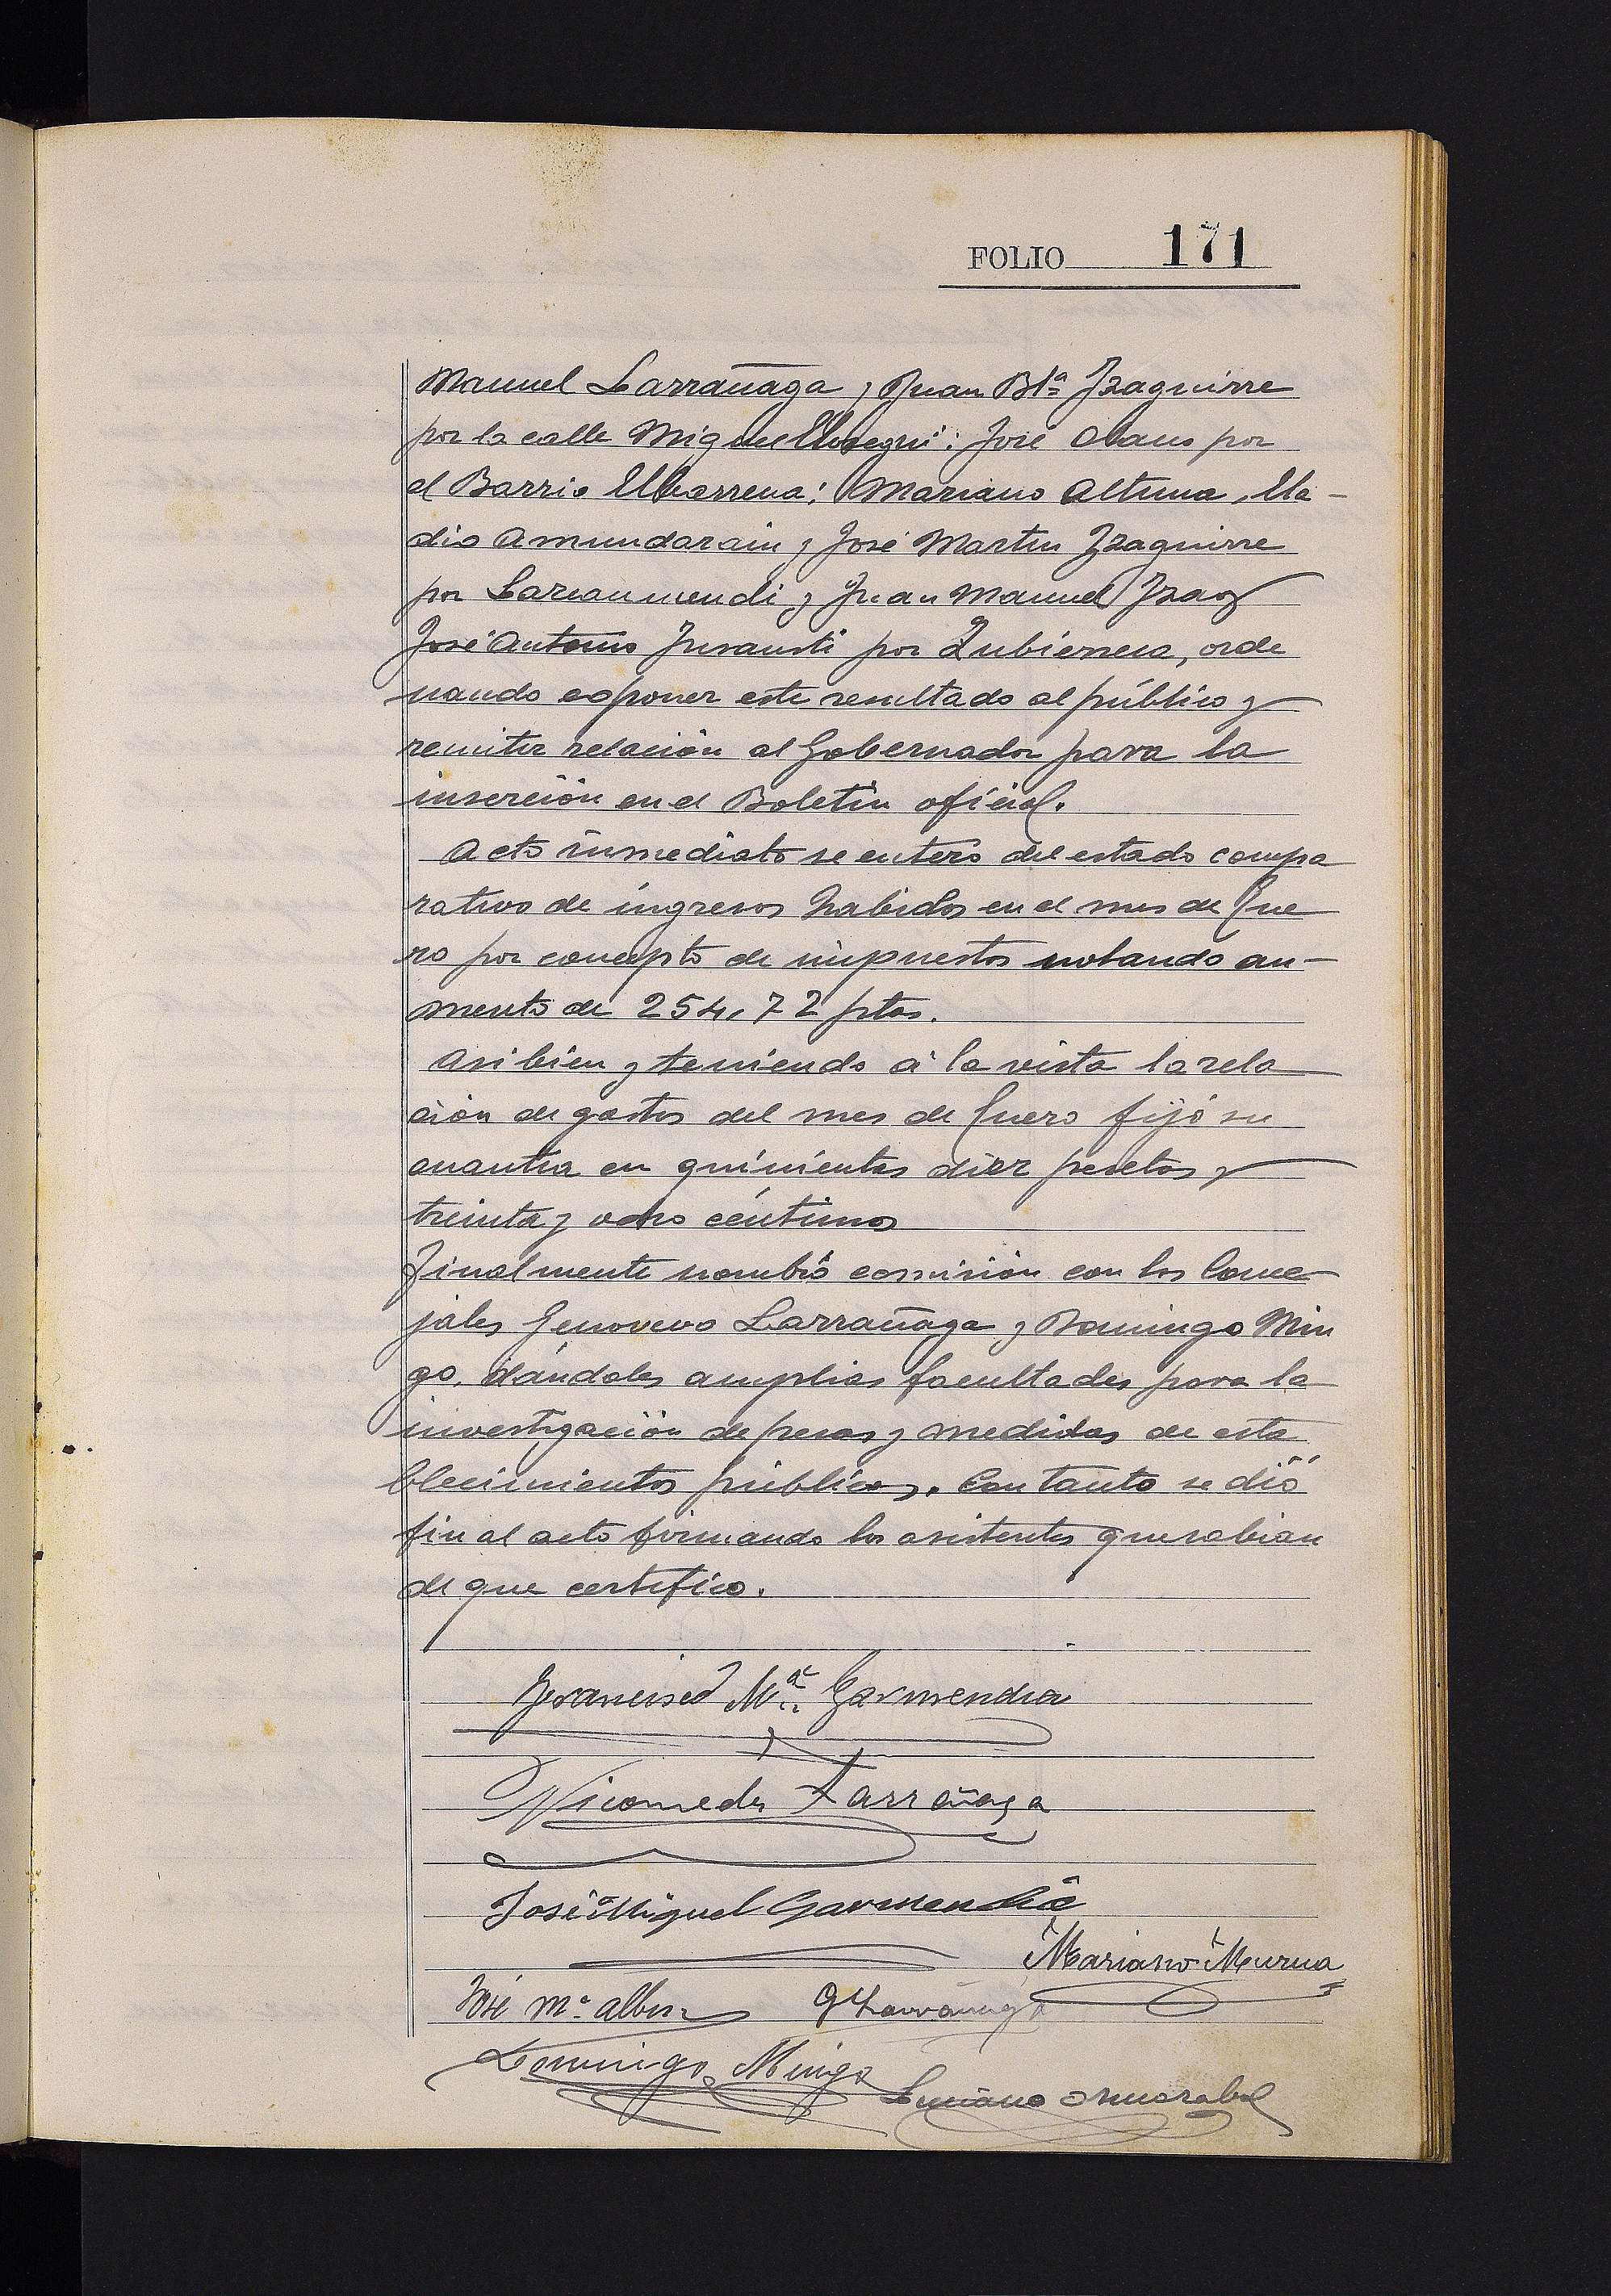 FOLIO 171
Manuel Larrañaga y Juan Bta Yzaguirre
por la calle Miguel Elosegui: José Olano por
el Barrio Elbarrena; Mariano Altuna, Ela-
dio Amundarain y José Martin Yzaguirre
por Larraumendi y Juan Manuel Yzag
José Antonio Jurausti por Zubierreca, orde
nando exponer este resultado al público y
remitir relación al Gobernador para la
inserción en el Boletin oficial.
Acto inmediato se enteró del estado compa
rativo de ingresos habidos en el mes de Ene
ro por concepto de impuestos notando au-
mento de 254,72 ptas.
Asi bien y teniendo á la vista la rela
ción de gastos del mes de Enero fijó su
cuantia en quinientas diez pesetas y
treinta y ocho céntimos
Finalmente nombró comisión con los Conce-
jales Genovevo Larrañaga y Domingo Min
go, dándoles amplias facultades para la
investigación de pesas y medidas de esta
blecimientos públicos. Con tanto se dió
fin al acto firmando los asistentes que sabian
de que certifico.
Francisco Mª Garmendia
Nicomedes Larrañaga
José Miguel Garmendia
Mariano Murua
José Mª Albisu G Larrañaga
Domingo Mingo Luciano